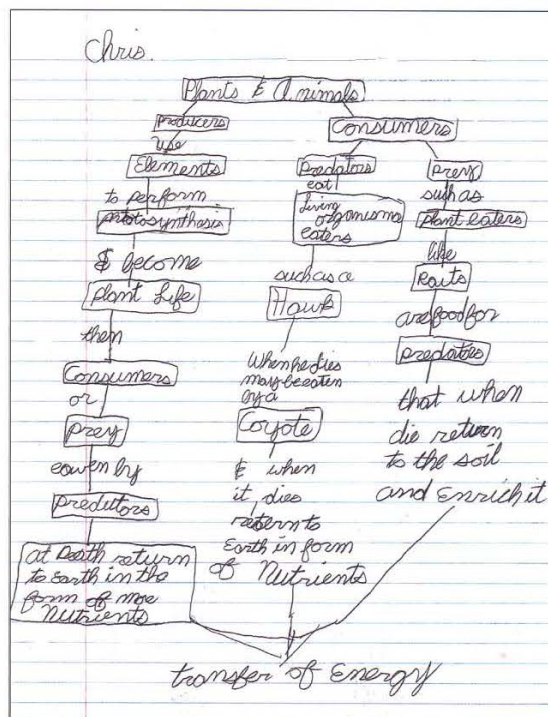 Chris.
Plants & Animals
Producers
use
Elements
to perform
photosynthesis
& become
Plant Life
then
Consumers
or
prey
eaven by
predutors
at Death return
to Earth in the
form of moe
Nutrients
Consumers
Predators
eat
living
organisms
eaters
such as a
Hawk
When he dies
may be eaten
by a
Coyote
& when
it dies
return to
Earth in form
of Nutrients
prey
such as
plant eaters
like
are food for
predators
that when
die return
to the soil
and Enrich it
transfer of Energy